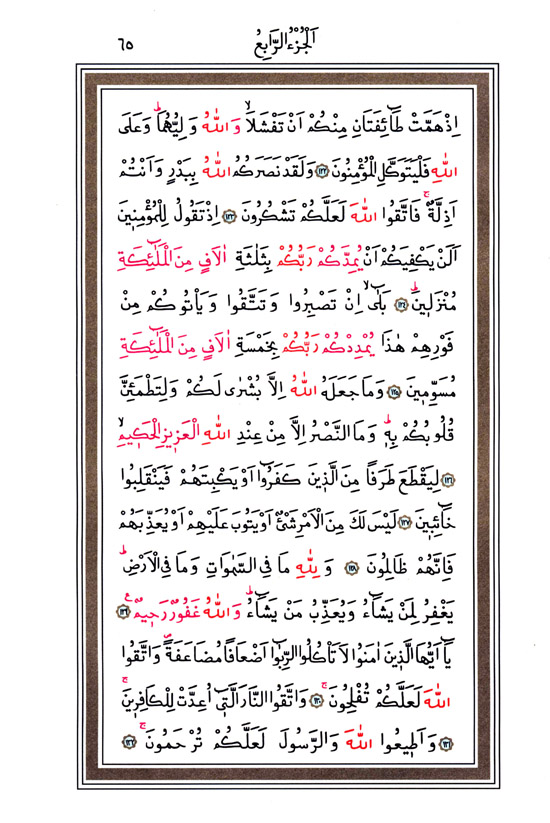 اَلْجُزْءُ الرَّابِعُ
٦٥
اِذْ هَمَّتْ طَٓائِفَتَانِ مِنْكُمْ اَنْ تَفْشَلَاۙ وَاللّٰهُ وَلِيُّهُمَاۜ وَعَلَى
اللّٰهِ فَلْيَتَوَكَّلِ الْمُؤْمِنُونَ ﴿١٢٢﴾ وَلَقَدْ نَصَرَكُمُ اللّٰهُ بِبَدْرٍ وَاَنْتُمْ
اَذِلَّةٌۚ فَاتَّقُوا اللّٰهَ لَعَلَّكُمْ تَشْكُرُونَ ﴿١٢٣﴾ اِذْ تَقُولُ لِلْمُؤْمِن۪ينَ
اَلَنْ يَكْفِيَكُمْ اَنْ يُمِدَّكُمْ رَبُّكُمْ بِثَلٰثَةِ اٰلَافٍ مِنَ الْمَلٰٓئِكَةِ
مُنْزَل۪ينَۜ ﴿١٢٤﴾ بَلٰٓىۙ اِنْ تَصْبِرُوا وَتَتَّقُوا وَيَأْتُوكُمْ مِنْ
فَوْرِهِمْ هٰذَا يُمْدِدْكُمْ رَبُّكُمْ بِخَمْسَةِ اٰلَافٍ مِنَ الْمَلٰٓئِكَةِ
مُسَوِّم۪ينَ ﴿١٢٥﴾ وَمَا جَعَلَهُ اللّٰهُ اِلَّا بُشْرٰى لَكُمْ وَلِتَطْمَئِنَّ
قُلُوبُكُمْ بِه۪ۜ وَمَا النَّصْرُ اِلَّا مِنْ عِنْدِ اللّٰهِ الْعَز۪يزِ الْحَك۪يمِۙ
﴿١٢٦﴾ لِيَقْطَعَ طَرَفًا مِنَ الَّذ۪ينَ كَفَرُٓوا اَوْ يَكْبِتَهُمْ فَيَنْقَلِبُوا
خَٓائِب۪ينَ ﴿١٢٧﴾ لَيْسَ لَكَ مِنَ الْاَمْرِ شَيْءٌ اَوْ يَتُوبَ عَلَيْهِمْ اَوْ يُعَذِّبَهُمْ
فَاِنَّهُمْ ظَالِمُونَ ﴿١٢٨﴾ وَلِلّٰهِ مَا فِي السَّمٰوَاتِ وَمَا فِي الْاَرْضِۜ
يَغْفِرُ لِمَنْ يَشَٓاءُ وَيُعَذِّبُ مَنْ يَشَٓاءُۜ وَاللّٰهُ غَفُورٌ رَح۪يمٌ۟ ﴿١٢٩﴾
يَٓا اَيُّهَا الَّذ۪ينَ اٰمَنُوا لَا تَأْكُلُوا الرِّبٰٓوا اَضْعَافًا مُضَاعَفَةًۖ وَاتَّقُوا
اللّٰهَ لَعَلَّكُمْ تُفْلِحُونَۚ ﴿١٣٠﴾ وَاتَّقُوا النَّارَ الَّت۪ٓي اُعِدَّتْ لِلْكَافِر۪ينَۚ
﴿١٣١﴾ وَاَط۪يعُوا اللّٰهَ وَالرَّسُولَ لَعَلَّكُمْ تُرْحَمُونَۚ ﴿١٣٢﴾